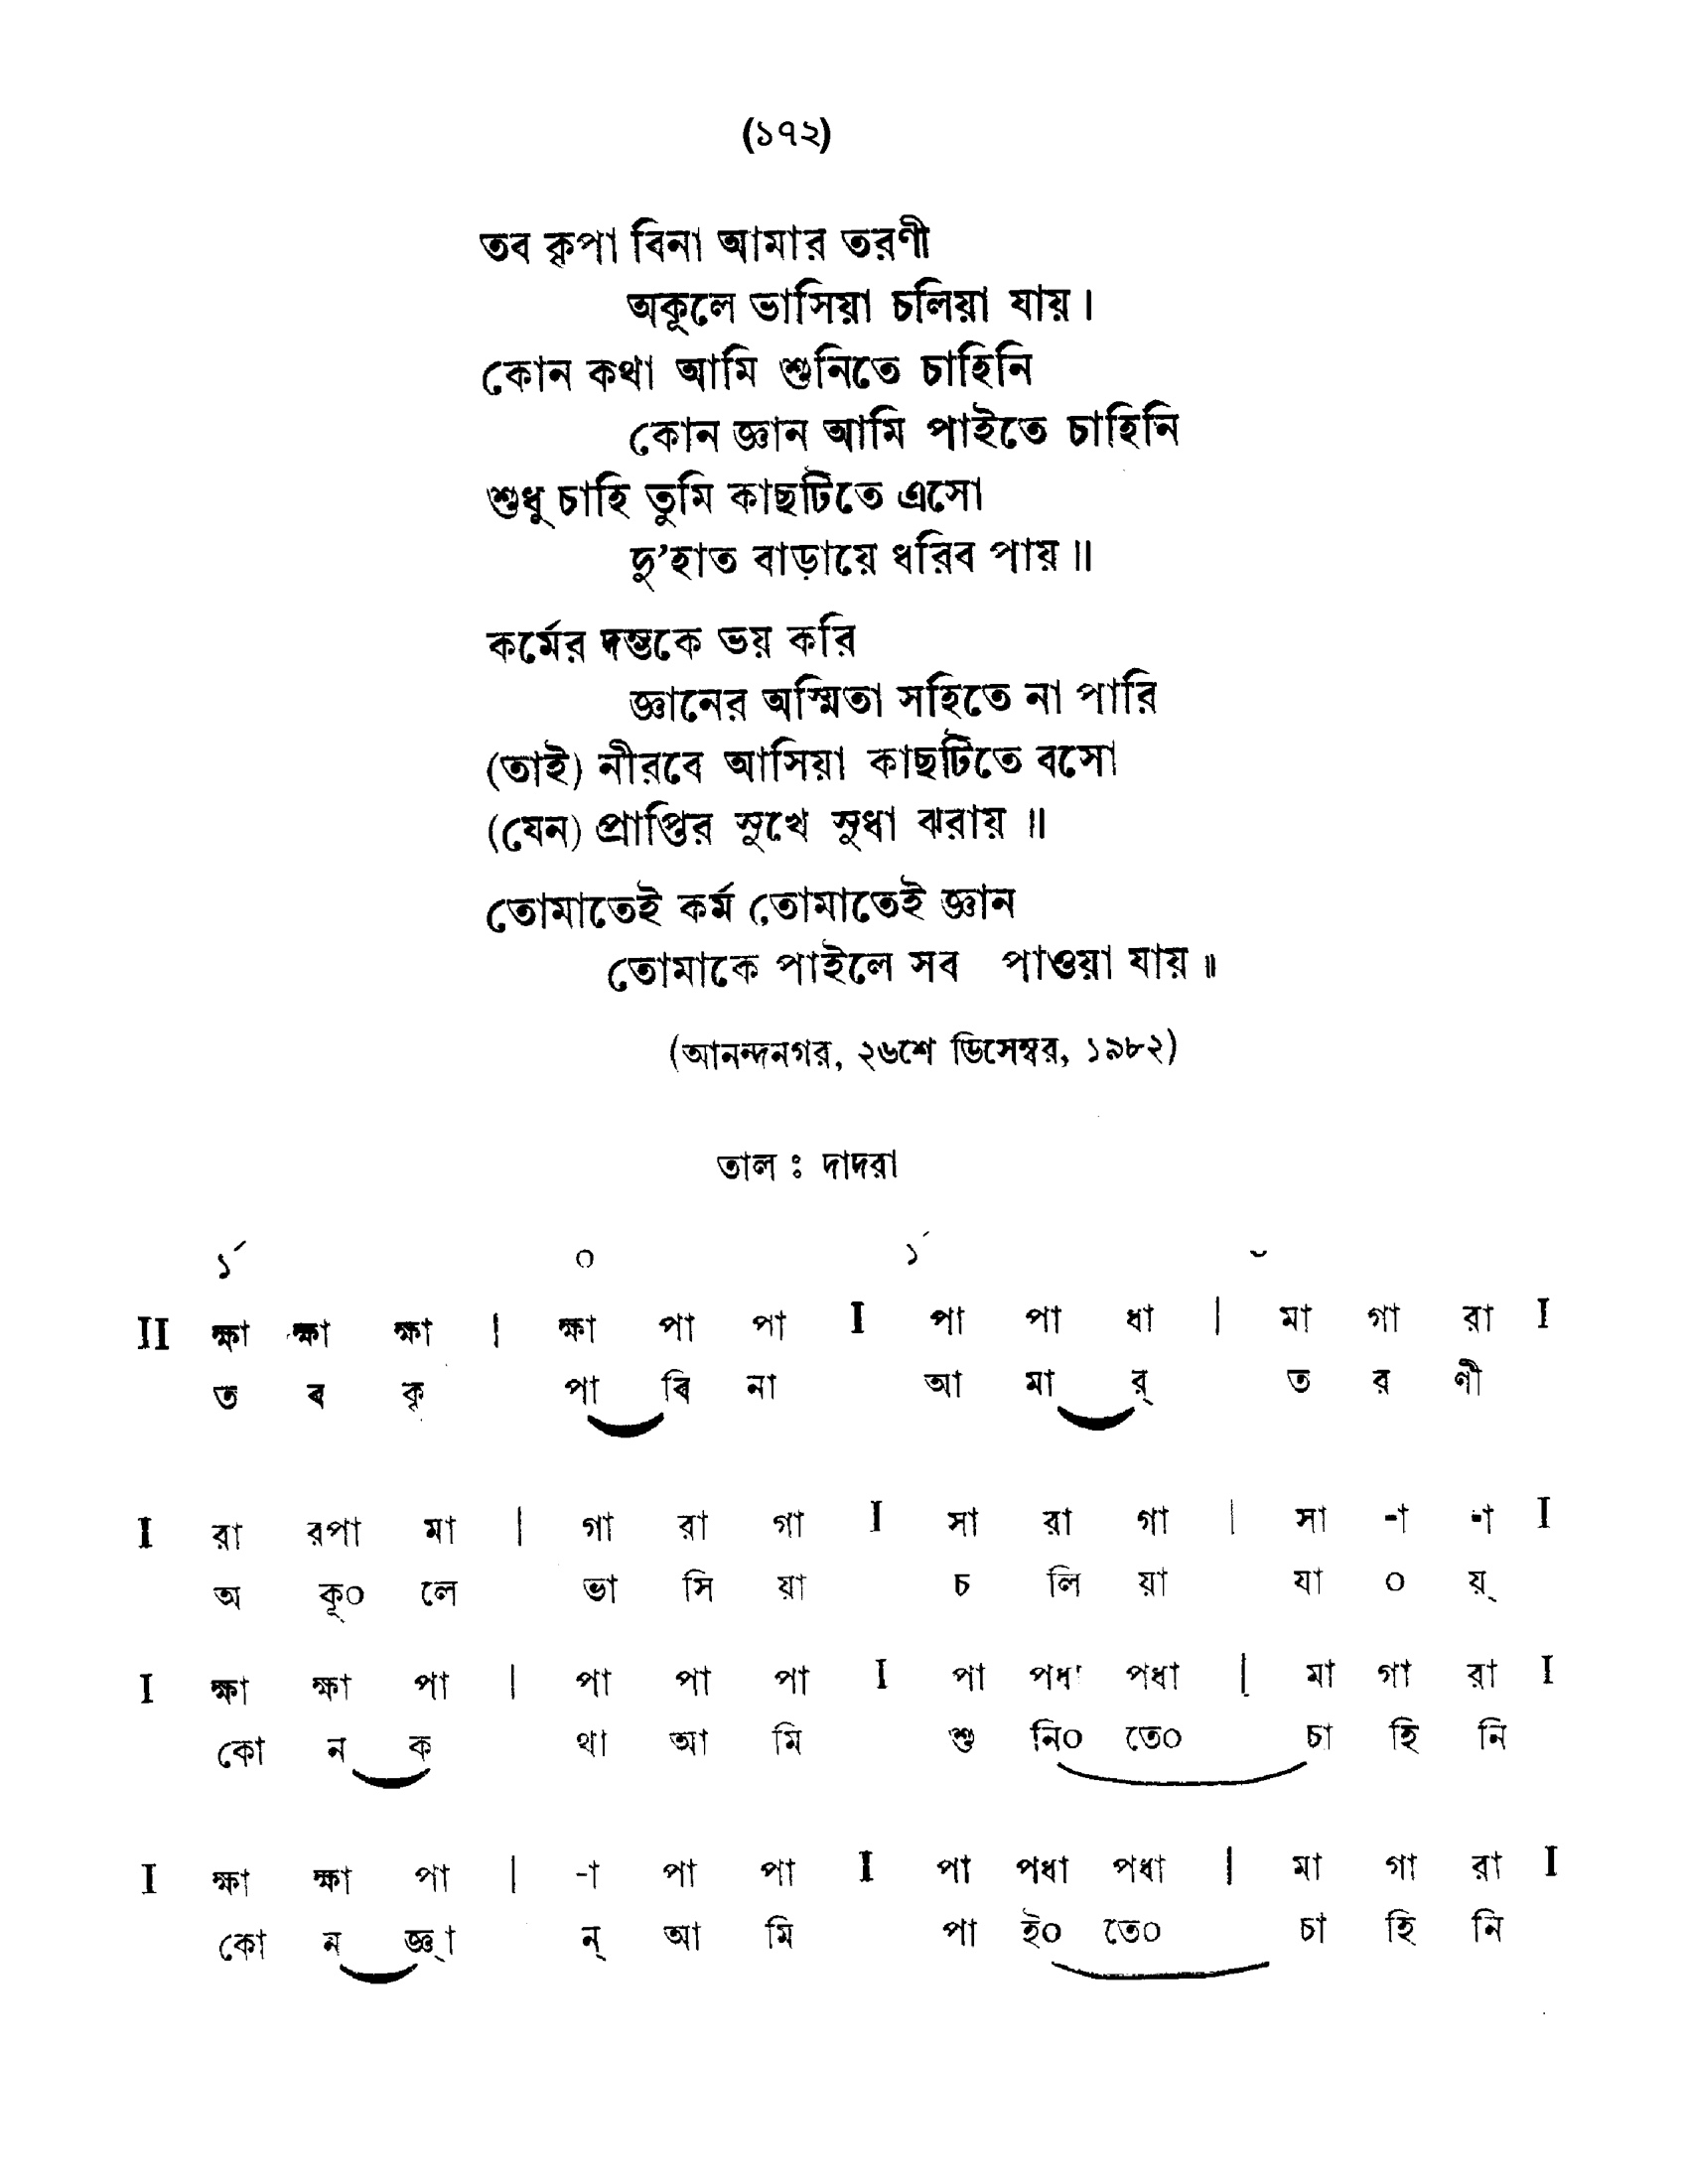 (১৭২)
তব কৃপা বিনা আমার তরণী
অকূলে ভাসিয়া চলিয়া যায়।
কোন কথা আমি শুনিতে চাহিনি
কোন জ্ঞান আমি পাইতে চাহিনি
শুধু চাহি তুমি কাছটিতে এসো
দু'হাত বাড়ায়ে ধরিব পায়॥
কর্মের দম্ভকে ভয় করি
জ্ঞানের অস্মিতা সহিতে না পারি
(তাই) নীরবে আসিয়া কাছটিতে বসো
(যেন) প্রাপ্তির সুখে সুধা ঝরায়॥
তোমাতেই কর্ম তোমাতেই জ্ঞান
তোমাকে পাইলে সব পাওয়া যায়॥
(আনন্দনগর, ২৬শে ডিসেম্বর, ১৯৮২)
তাল ঃ দাদরা
১´ ০ ১´
II ক্ষা ক্ষা ক্ষা | ক্ষা পা পা I পা পা ধা | মা গা রা I
ত ব কৃ পা বি না আ মা র্ ত র ণী
I রা রপা মা | গা রা গা I সা রা গা | সা -া -া I
অ কূ০ লে ভা সি য়া চ লি য়া যা ০ য়্
I ক্ষা ক্ষা পা | পা পা পা I পা পধা পধা | মা গা রা I
কো ন ক থা আ মি শু নি০ তে০ চা হি নি
I ক্ষা ক্ষা পা | -া পা পা I পা পধা পধা | মা গা রা I
কো ন জ্ঞা ন্ আ মি পা ই০ তে০ চা হি নি